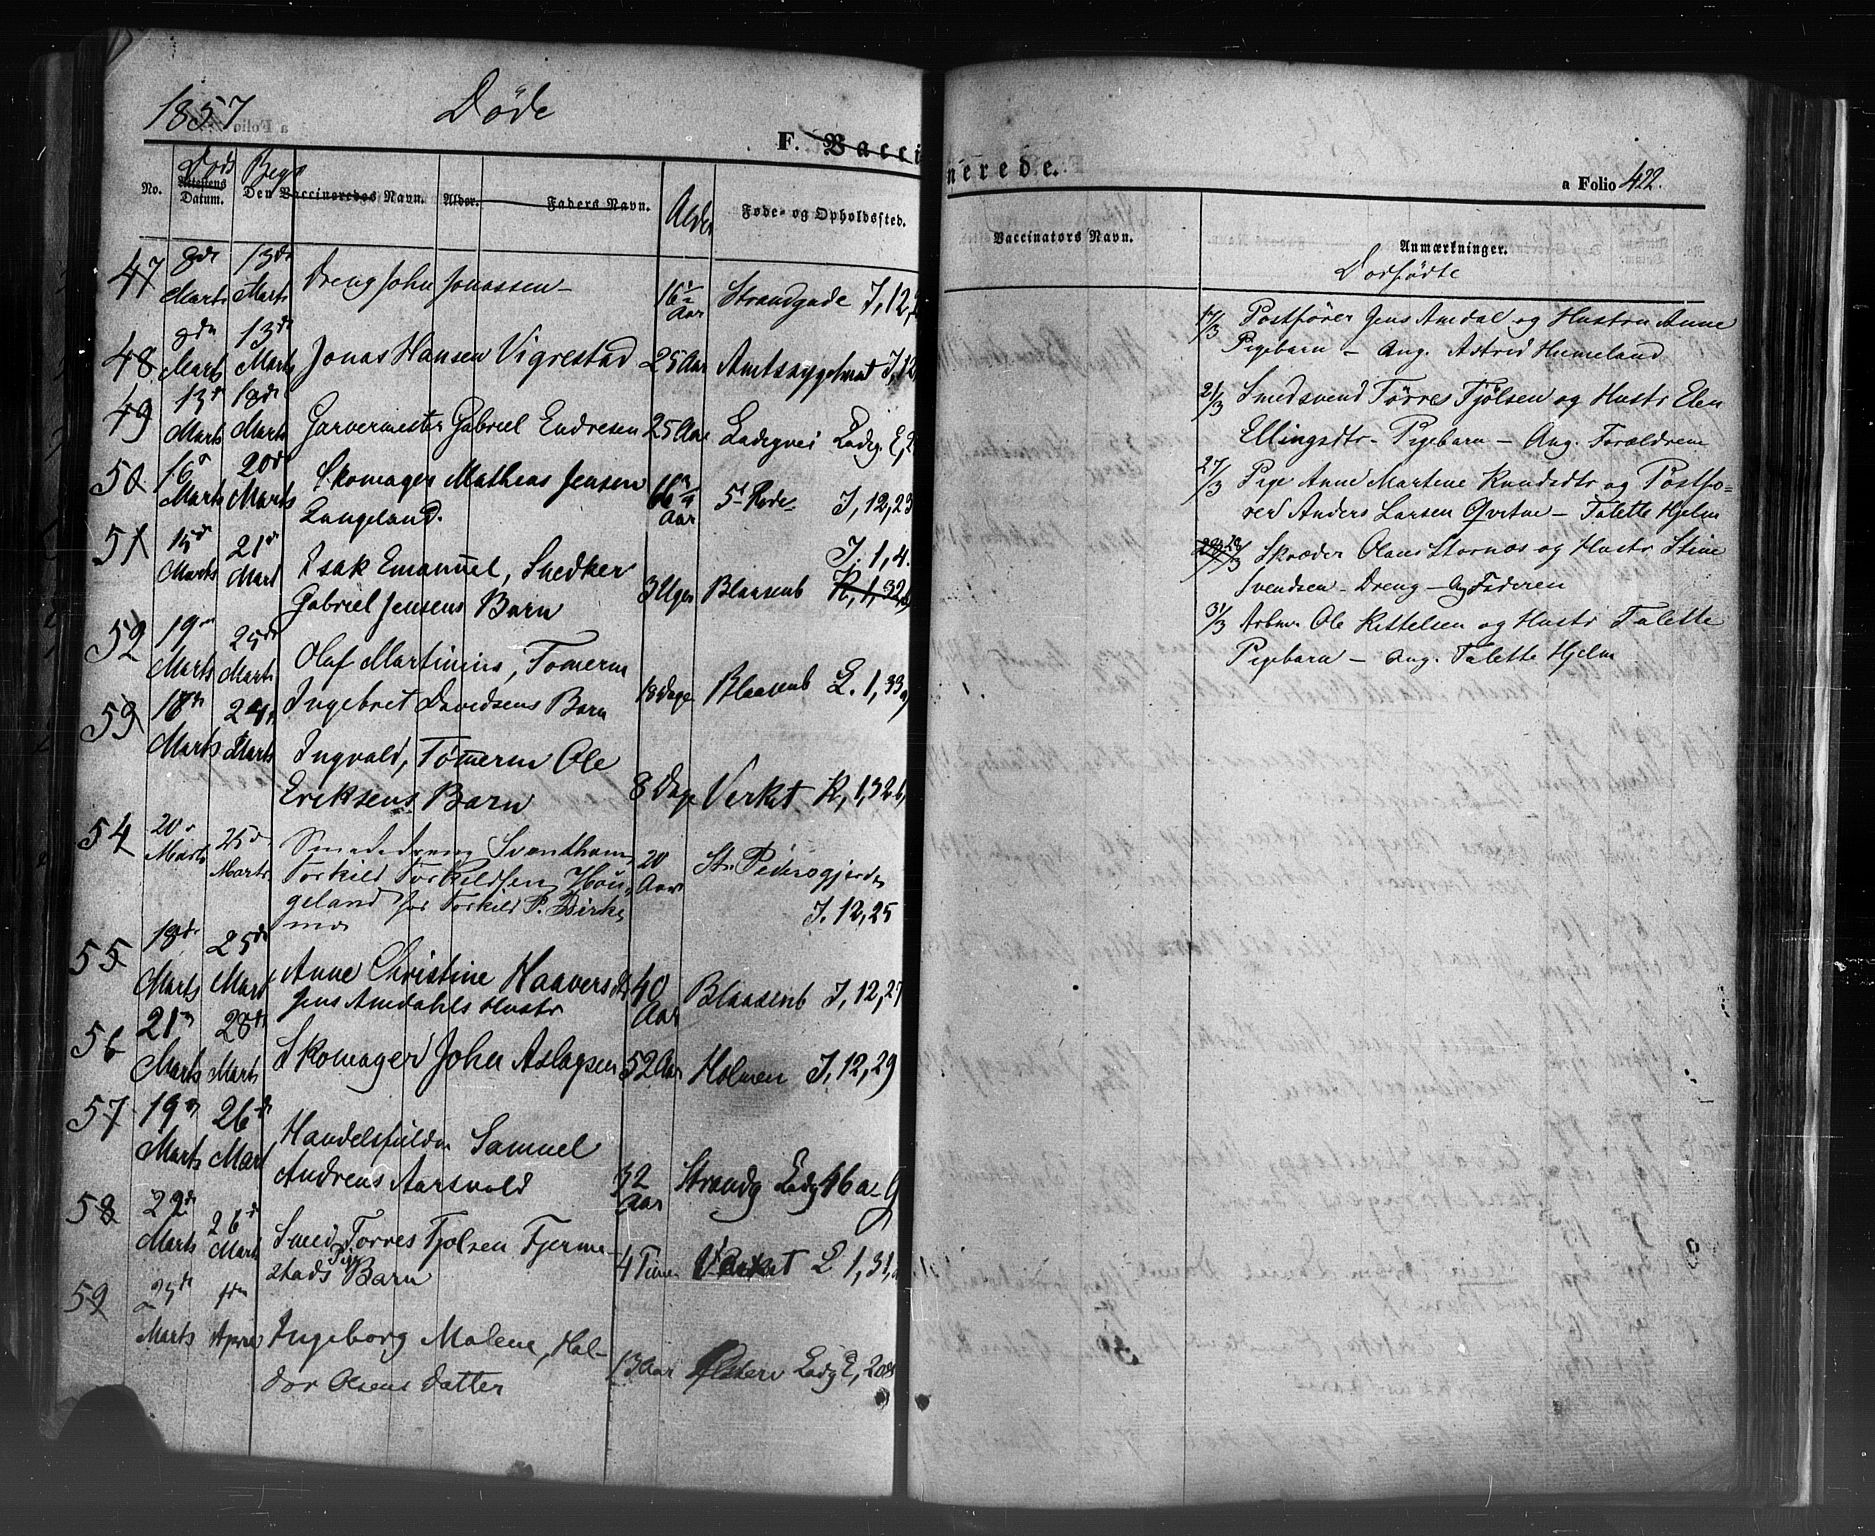 1857 Døde
F. Vaccinerede. a Folio 422.
No. Døds Attestens Datum. Begr Den Vaccineredes Navn. Alder. Faders Navn. Alder Føde- og Opholdssted. Vaccinators Navn. Anmærkninger.
Dødfødte
47 8de Marts 13de Marts Dreng John Jonassen 16 Aar Strandgade I, 12,
48 8de Marts 13de Marts Jonas Hansen Vigrestad 25 Aar Amtssygehuset I, 12
49 13de Marts 18de Marts Garvermester Gabriel Endresen 25 Aar Ladegvei Ladg. E, 2
50 16de Marts 20de Marts Skomager Mathias Jensen
Langeland. 16 Aar 5te Rode I, 12, 23
51 15de Marts 21de Mart Isak Emanuel, Snedker
Gabriel Jensens Barn 3 Uger Blaasenb I. 1, 4.
K, 1, 32
52 19de Marts 25de Marts Olaf Martinius, Tømerm
Ingebret Davidsens Barn 18 Dage Blaasenb L. 1, 33
53 18de Marts 24de Marts Ingvald, Tømerm Ole
Eriksens Barn 8 Dage Verket K, 1, 32 b
54 20de Marts 25de Marts Smededreng Svendham
Torkild Torkildsen Hau-
geland for Torkild P. Birke-
moe 20 Aar St. Pedersgjerde
I. 12, 25
55 18de Marts 25de Mart Anne Christine Haaversdtr
Jens Amdahls Hustr 40 Aar Blaasenb I, 12, 27
56 21de Marts 28de Marts Skomager John Aslagsen 52 Aar Holmen I, 12, 29
57 19de Marts 26de Mart Handelsfuldm Samuel
Andreas Aarsvold 32 Aar Strandg Ladg 46 a
58 22de Marts 26de Mart Smed Torres Tjølsen Fjerme-
stads Pige Barn 4 Timer Verket L 1, 31,
59 25de Marts 1ste April Ingeborg Malene, Hal-
dor Olsens Datter 13 Aar Østerv Ladg E, 208
17/3 Postfører Jens Amdal og Hustru Anne
Pigebarn – Ang. Astrid Humeland
21/3 Smedsvend Tørres Tjølsen og Hustr Elen
Ellingsdtr. Pigebarn – Ang. Forældrene
27/3 Pige Anne Martene Knudsdtr og Postfø-
rer Anders Larsen Qvitne – Talette Hjelm
28/3 Skræder Olaus Stornæs og Hustr Stine
Svendsen – Dreng – Ang Faderen
31/3 Arbm Ole Kittelsen og Hustr Talette
Pigebarn – Ang. Talette Hjelm